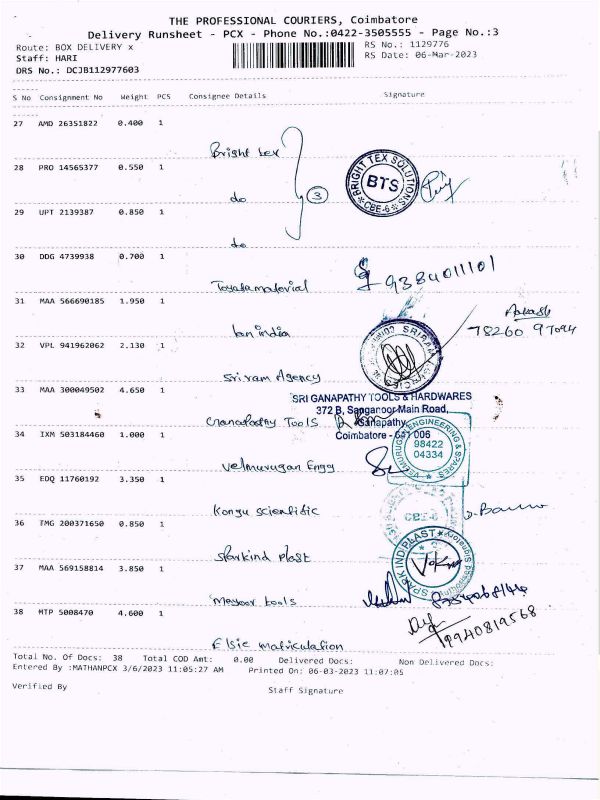 THE PROFESSIONAL COURIERS, Coimbatore
Delivery Runsheet - PCX - Phone No.:0422-3505555 - Page No.:3
Route: BOX DELIVERY x
RS No.: 1129776
Staff: HARI
RS Date: 06-Mar-2023
DRS No.: DCJB112977603
S No Consignment No Weight PCS Consignee Details Signature
27 AMD 26351822 0.400 1
Bright tex
28 PRO 14565377 0.550 1
BRIGHT TEX SOLUTIONS
BTS
CBE-6
3
do
29 UPT 2139387 0.850 1
do
30 DDG 4739938 0.700 1
9384011101
31 MAA 566690185 1.950 1
78260 97094
India
32 VPL 941962062 2.130 1
SRIRAM
Sriram Agency
33 MAA 300049502 4.650 1
SRI GANAPATHY TOOLS & HARDWARES
372 B, Sanganoor Main Road,
Ganapathy,
Coimbatore - 641 006
Ganapathy Tools
34 IXM 503184460 1.000 1
VELMURUGAN ENGINEERING & SPARES
98422
04334
Velmurugan Engg
35 EDQ 11760192 3.350 1
Kongu scientific
CBE-6
36 TMG 200371650 0.850 1
Sparkind plast
SPARK IND PLAST
37 MAA 569158814 3.850 1
Mayoor tools
38 MTP 5008470 4.600 1
9940819568
Elsie matriculation
Total No. Of Docs: 38 Total COD Amt: 0.00 Delivered Docs: Non Delivered Docs:
Entered By :MATHANPCX 3/6/2023 11:05:27 AM Printed On: 06-03-2023 11:07:05
Verified By
Staff Signature